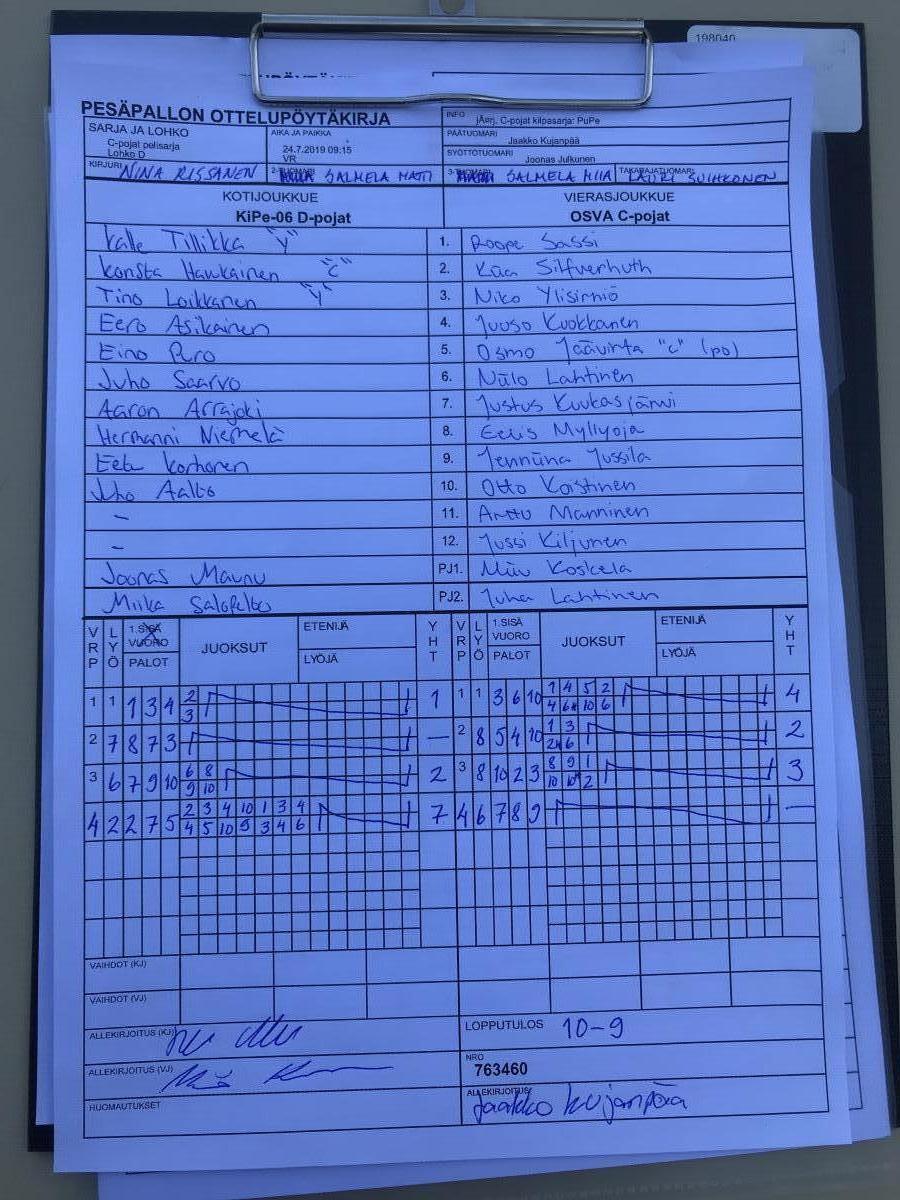 198040
PESÄPALLON OTTELUPÖYTÄKIRJA
SARJA JA LOHKO
C-pojat pelisarja
Lohko D
AIKA JA PAIKKA
24.7.2019 09:15
VR
INFO
jÄerj. C-pojat kilpasarja: PuPe
PÄÄTUOMARI
Jaakko Kujanpää
SYÖTTÖTUOMARI
Joonas Julkunen
KIRJURI NINA RISSANEN SALMELA MATTI SALMELA MIIA TAKARAJATUOMARI LAURI SUIHKONEN
KOTIJOUKKUE VIERASJOUKKUE
KiPe-06 D-pojat OSVA C-pojat
Kalle Tillikka "y" 1. Roope Sassi
Konsta Haukainen "c" 2. Silfverhuth
Tino Loikkanen "y" 3. Niko Ylisirniö
Eero Asikainen 4. Juuso Kuokkanen
Eino Puro 5. Osmo "c" (po)
Juho Saarvo 6. Niilo Lahtinen
Aaron Arrajoki 7. Justus Kuukasjärvi
Hermanni Niemelä 8. Eelis Myllyoja
Eetu Korhonen 9. Jenniina Jussila
Juho Aalto 10. Otto Koistinen
– 11. Arttu Manninen
– 12. Jussi Kiljunen
Joonas Maunu PJ1. Koskela
Miika PJ2. Juha Lahtinen
VRP LYÖ 1.SISÄ VUORO PALOT JUOKSUT ETENIJÄ LYÖJÄ YHT VRP LYÖ 1.SISÄ VUORO PALOT JUOKSUT ETENIJÄ LYÖJÄ YHT
1 1 1 3 4 2 1 1 1 3 6 10 1 4 5 2 4
3 4 6* 10 6
2 7 8 7 3 – 2 8 5 4 10 1 3 2
2* 6
3 6 7 9 10 6 8 2 3 8 10 2 3 8 9 1 3
9 10 10 10* 2
4 2 2 7 5 2 3 4 10 1 3 4 7 4 6 7 8 9 –
4 5 10 5 3 4 6
VAIHDOT (KJ)
VAIHDOT (VJ)
ALLEKIRJOITUS (KJ)
LOPPUTULOS 10-9
ALLEKIRJOITUS (VJ)
NRO
763460
HUOMAUTUKSET
ALLEKIRJOITUS
Jaakko Kujanpää